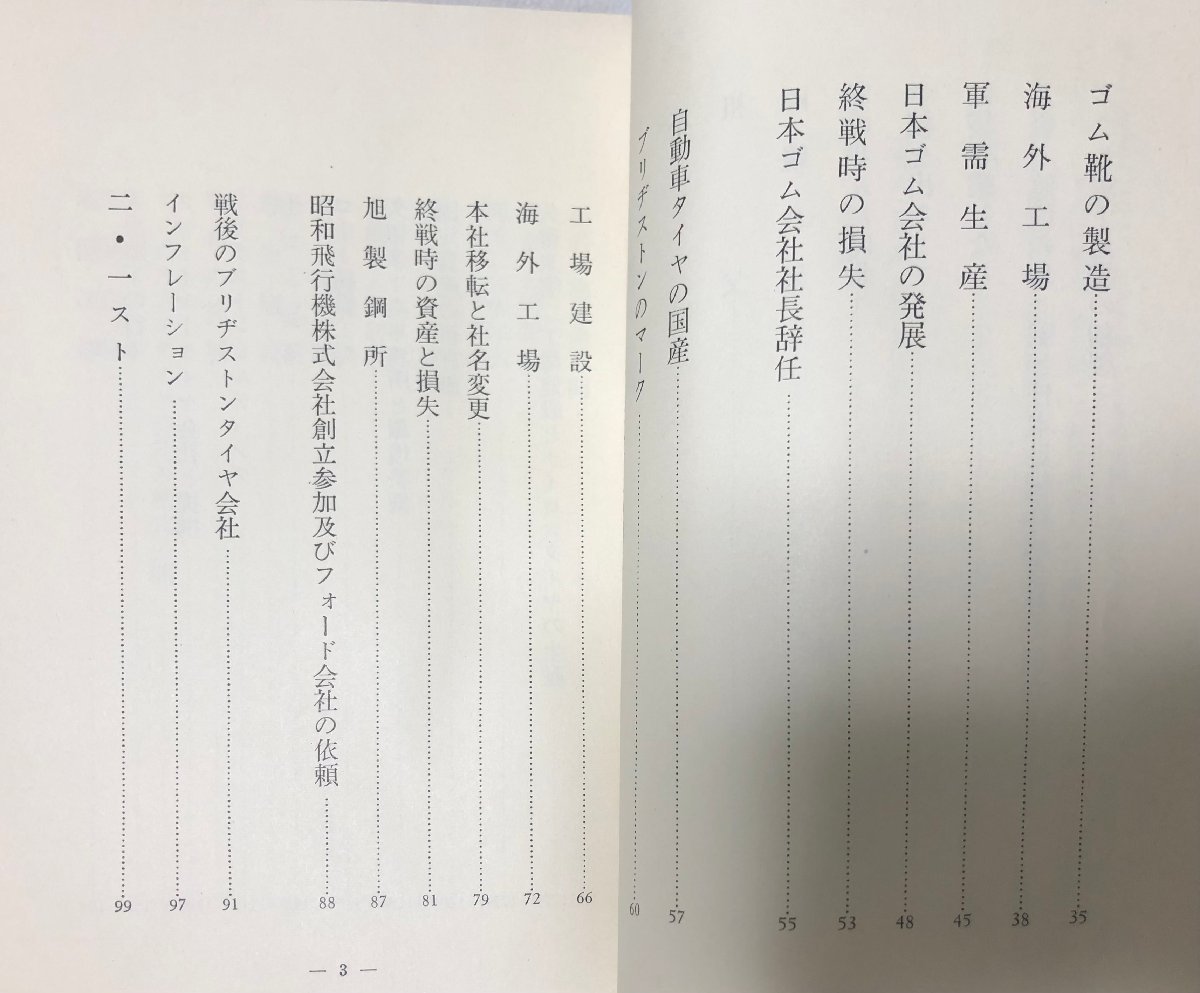 ゴム靴の製造……35
海外工場……38
軍需生産……45
日本ゴム会社の発展……48
終戦時の損失……53
日本ゴム会社社長辞任……55
自動車タイヤの国産……57
ブリヂストンのマーク……60
工場建設……66
海外工場……72
本社移転と社名変更……79
終戦時の資産と損失……81
旭製鋼所……87
昭和飛行機株式会社創立参加及びフォード会社の依頼……88
戦後のブリヂストンタイヤ会社……91
インフレーション……97
二・一スト……99
— 3 —